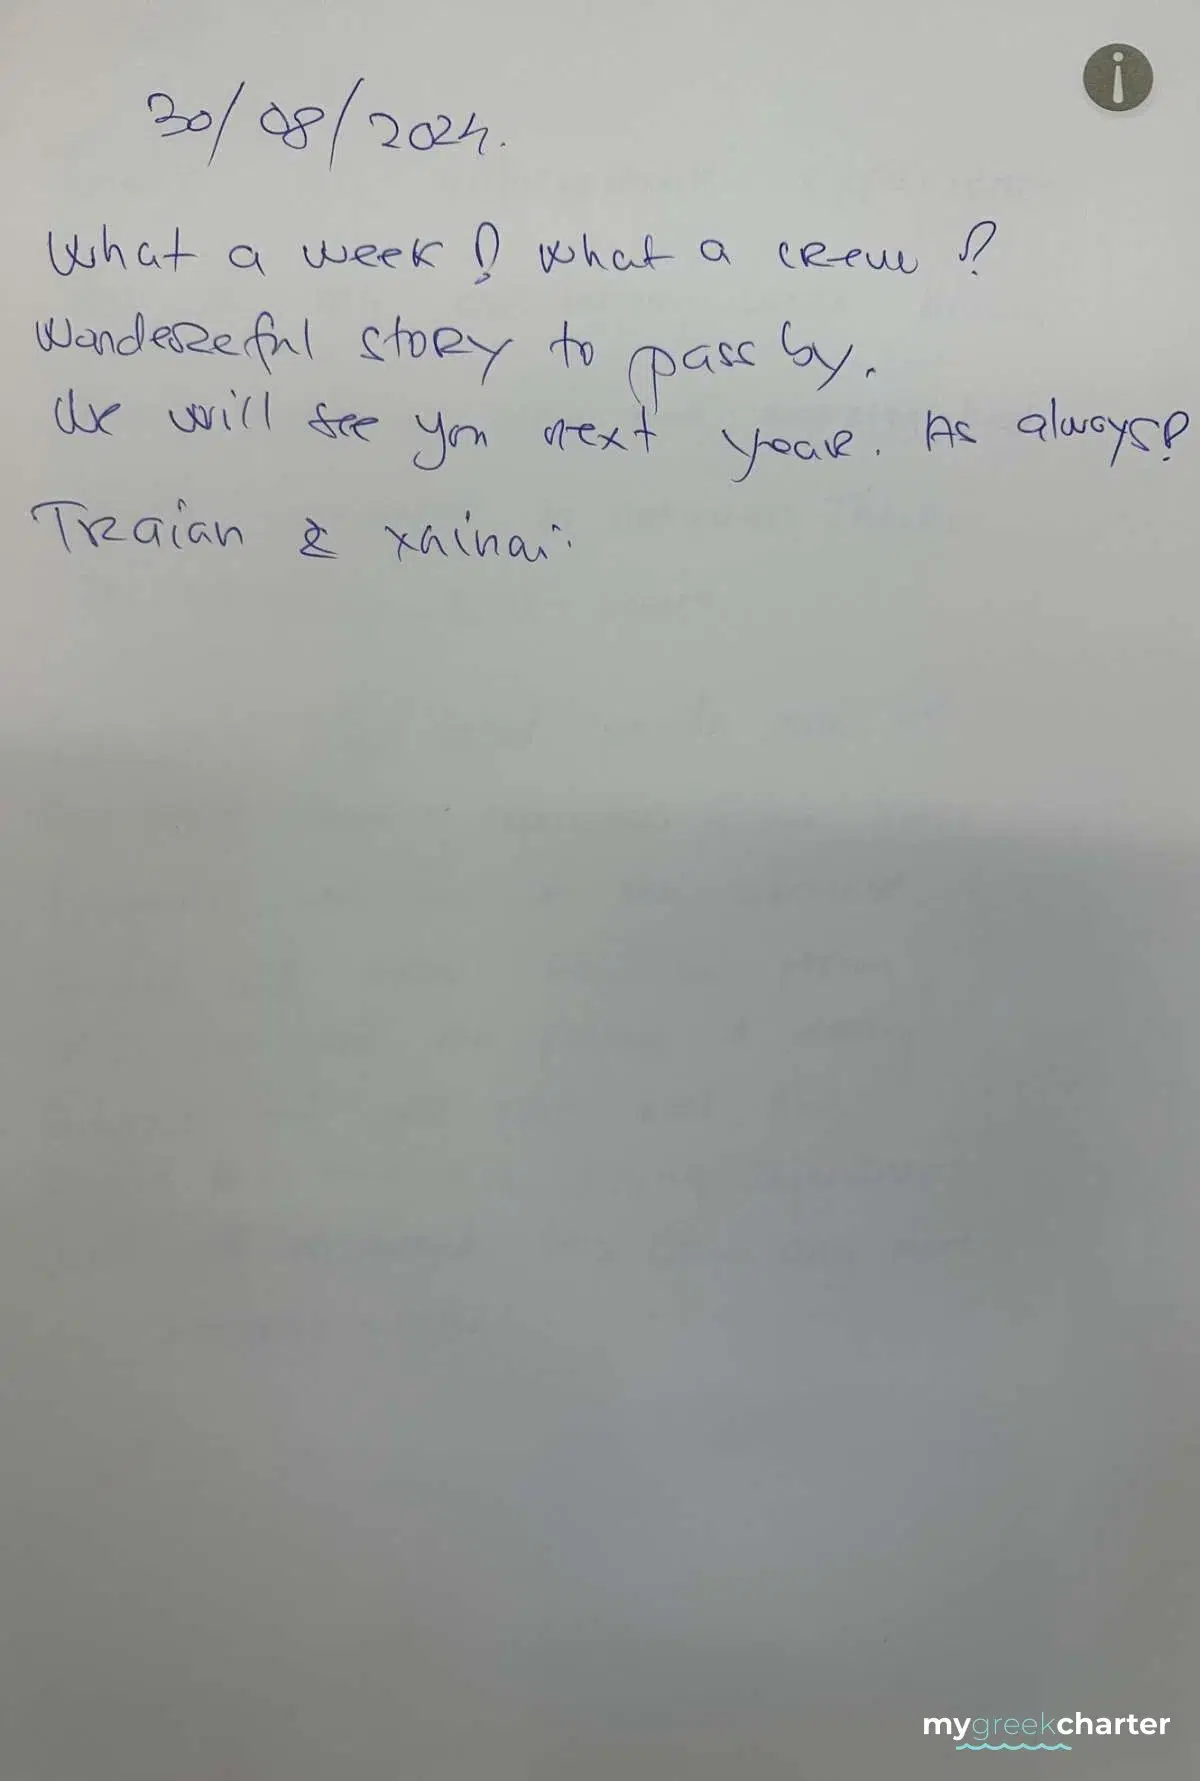 30/08/2024.
What a week! What a crew!
Wondereful story to pass by.
We will see you next year. As always!
Traian &
mygreekcharter